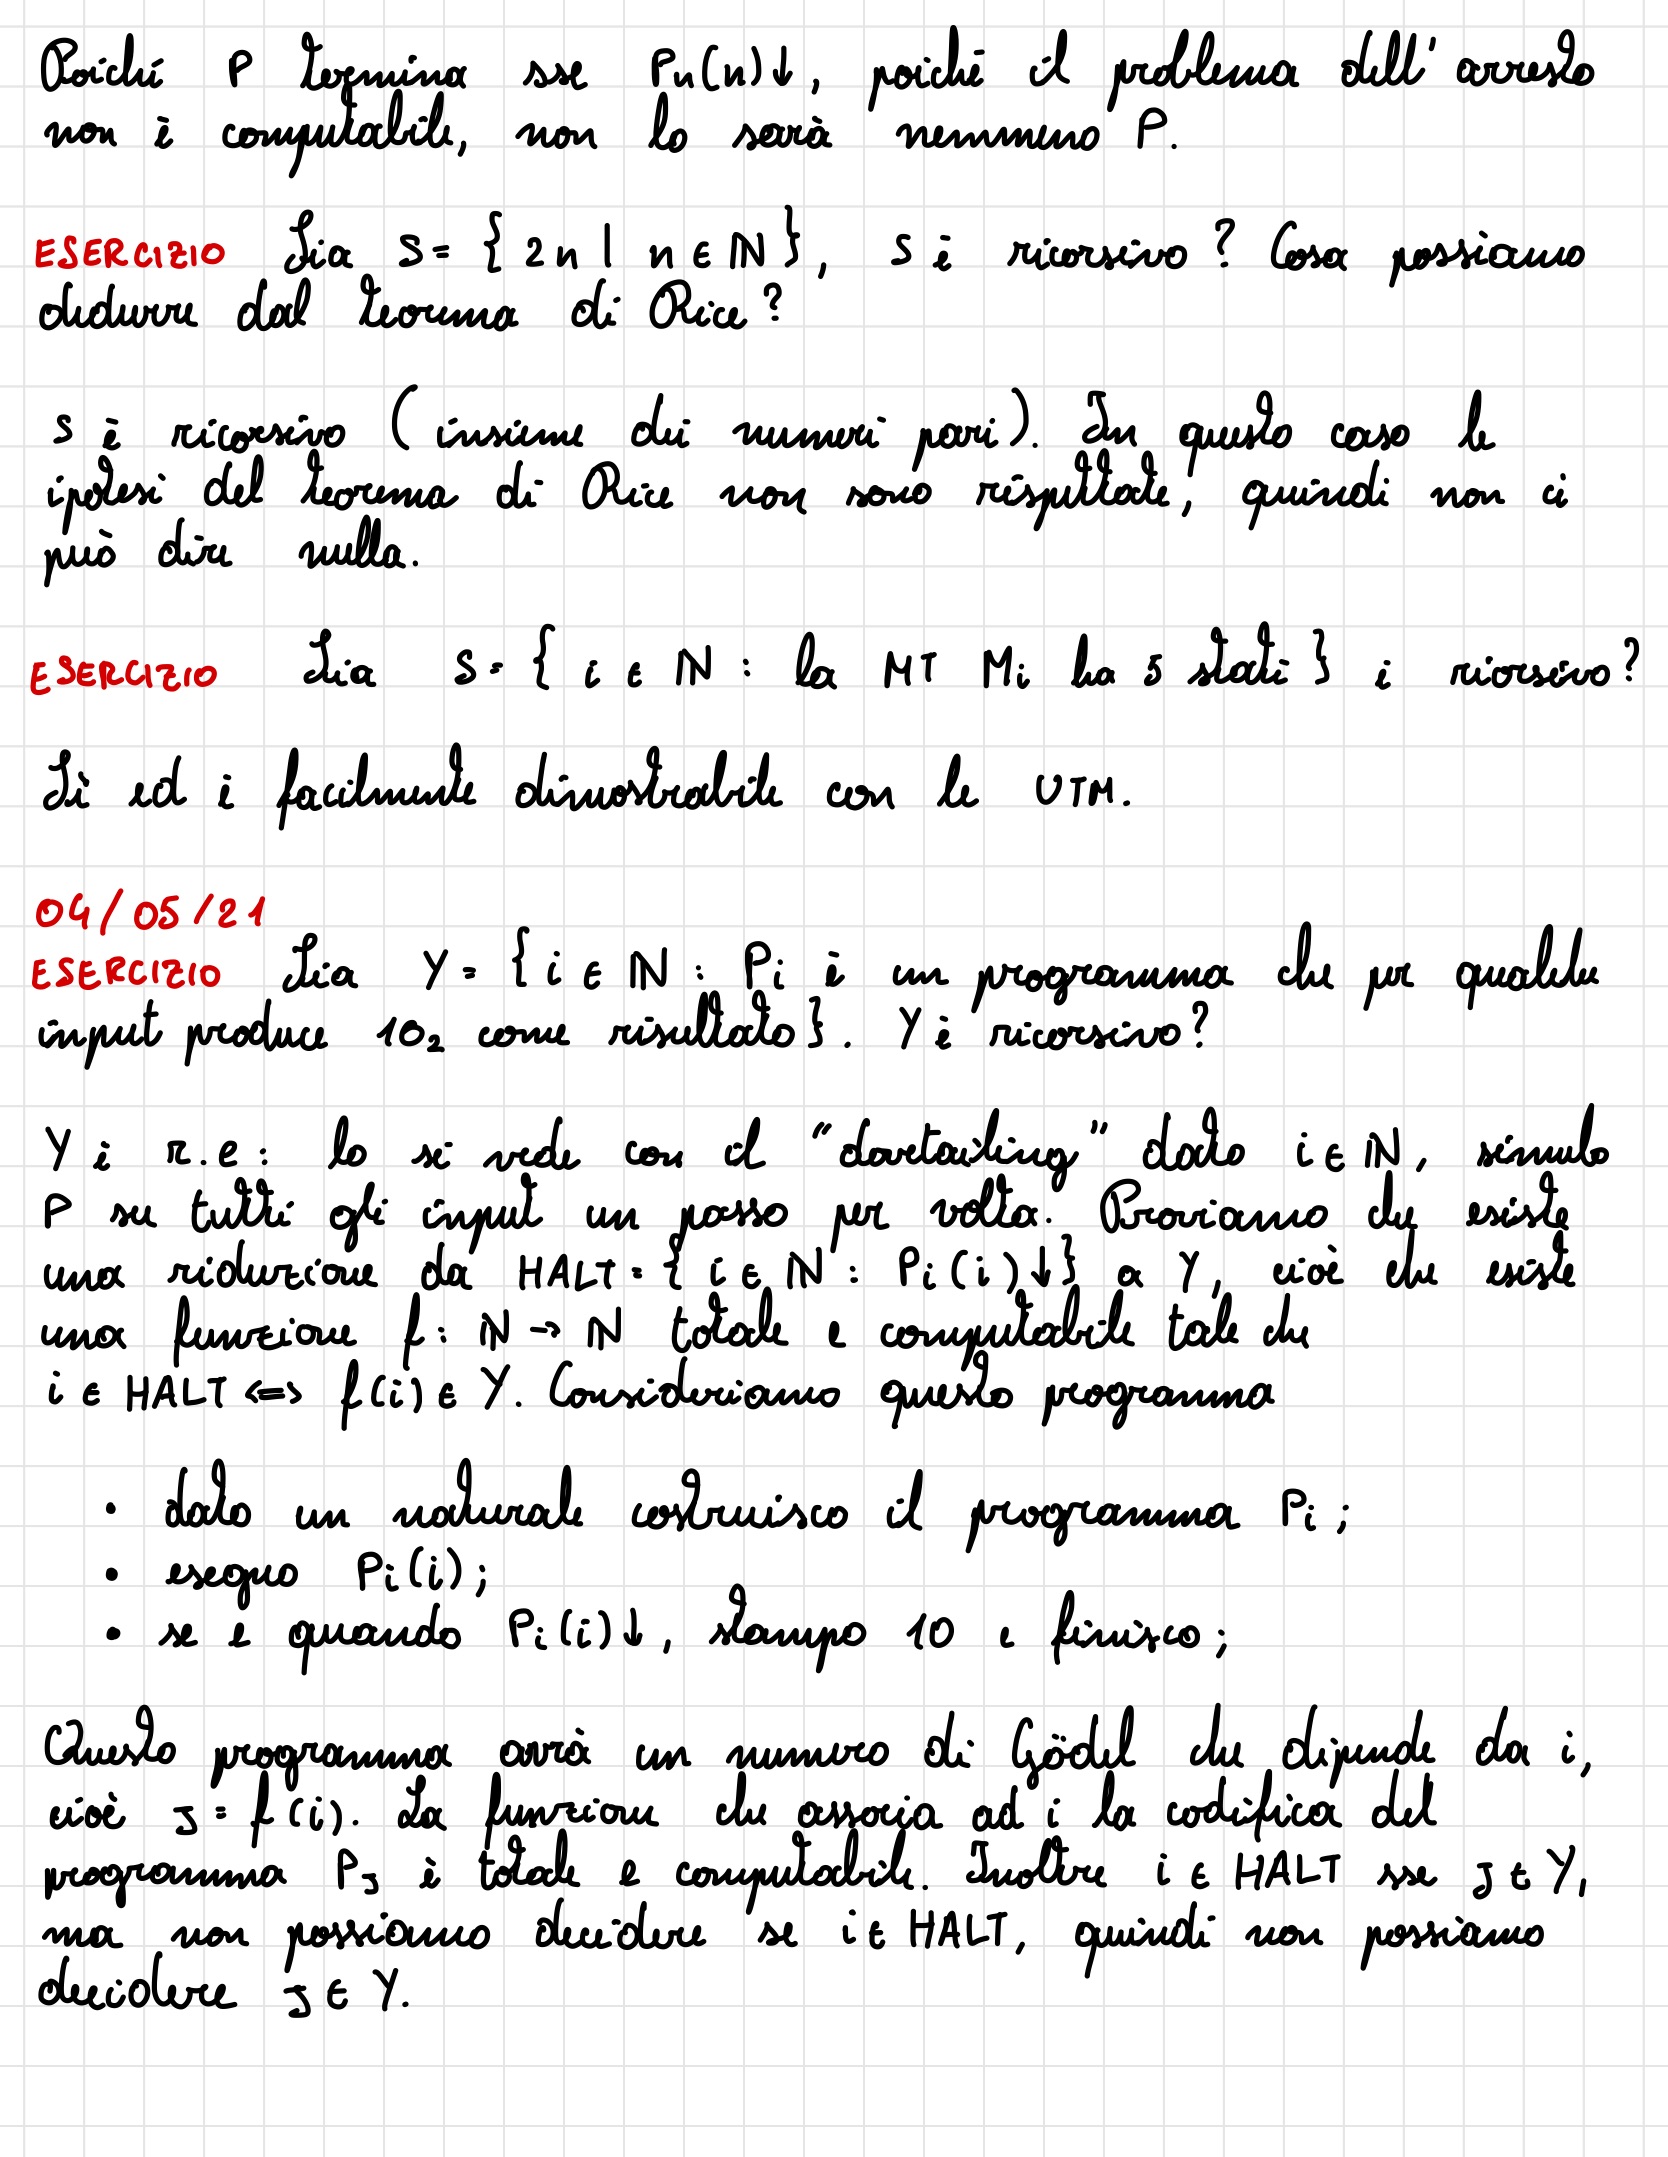 Poiché P termina sse Pn(n)↓, poiché il problema dell'arresto
non è computabile, non lo sarà nemmeno P.
ESERCIZIO Sia S = { 2n | n ∈ ℕ }, S è ricorsivo? Cosa possiamo
dedurre dal teorema di Rice?
S è ricorsivo ( insieme dei numeri pari ). In questo caso le
ipotesi del teorema di Rice non sono rispettate, quindi non ci
può dire nulla.
ESERCIZIO Sia S = { i ∈ ℕ : la MT Mi ha 5 stati } è riorsivo?
Sì ed è facilmente dimostrabile con le UTM.
04/05/21
ESERCIZIO Sia Y = { i ∈ ℕ : Pi è un programma che per qualche
input produce 10₂ come risultato }. Y è ricorsivo?
Y è r.e: lo si vede con il "dovetailing" dato i ∈ ℕ, simulo
P su tutti gli input un passo per volta. Proviamo che esiste
una riduzione da HALT = { i ∈ ℕ : Pi(i)↓} a Y, cioè che esiste
una funzione f: ℕ → ℕ totale e computabile tale che
i ∈ HALT <=> f(i) ∈ Y. Consideriamo questo programma
• dato un naturale costruisco il programma Pi;
• eseguo Pi(i);
• se e quando Pi(i)↓, stampo 10 e finisco;
Questo programma avrà un numero di Gödel che dipende da i,
cioè J = f(i). La funzione che associa ad i la codifica del
programma PJ è totale e computabile. Inoltre i ∈ HALT sse J ∈ Y,
ma non possiamo decidere se i ∈ HALT, quindi non possiamo
decidere J ∈ Y.